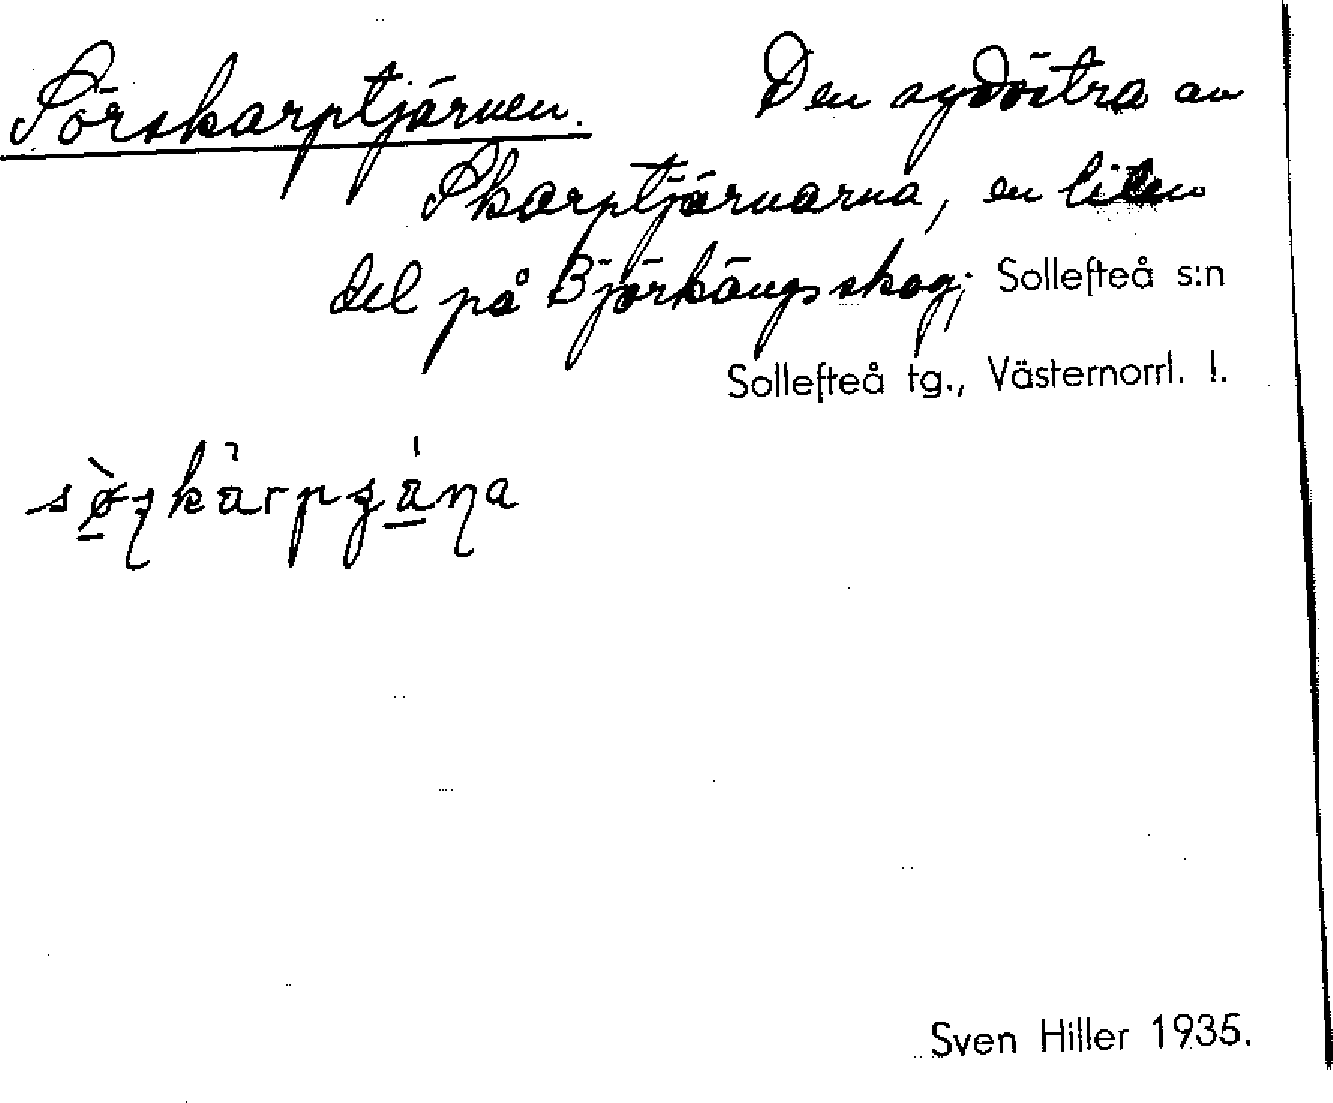 Sörskarptjärnen. Den sydöstra av
Skarptjärnarna, en liten
del på Björkängsskog; Sollefteå s:n
Sollefteå tg., Västernorrl. l.
Sven Hiller 1935.